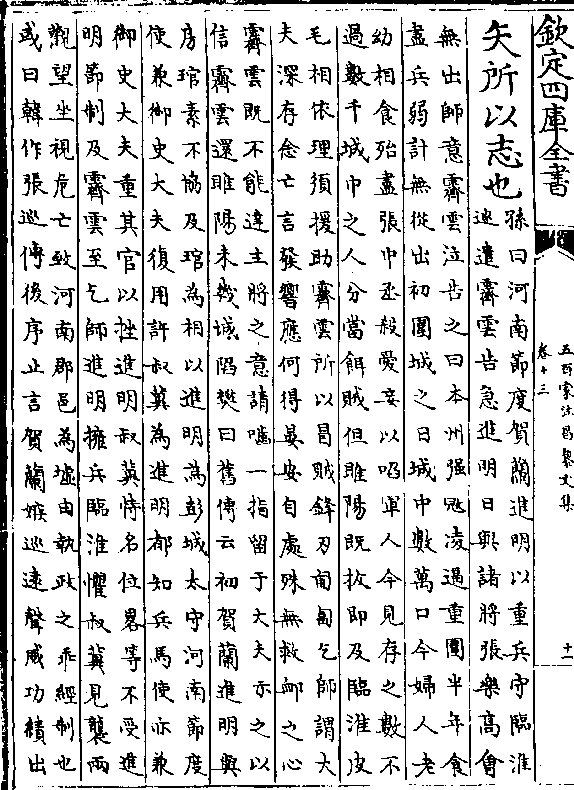 欽定四庫全書
五百家注昌黎文集
卷十三
十一
矢所以志也
孫曰河南節度賀蘭進明以重兵守臨淮
巡遣霽雲告急進明日與諸將張樂高會
無出師意霽雲泣告之曰本州强寇凌逼重圍半年食
盡兵弱計無從出初圍城之日城中數萬口今婦人老
幼相食殆盡張中丞殺愛妾以啗軍人今見存之數不
過數千城中之人分當餌賊但睢陽既拔即及臨淮皮
毛相依理須援助霽雲所以冒賊鋒刃匍匐乞師謂大
夫深存念亡言發響應何得晏安自處殊無救䘏之心
霽雲既不能達主將之意請嚙一指留于大夫示之以
信霽雲還睢陽未幾城陷樊曰舊傳云初賀蘭進明與
房琯素不協及琯為相以進明為彭城太守河南節度
使兼御史大夫復用許叔冀為進明都知兵馬使亦兼
御史大夫重其官以挫進明叔冀恃名位畧等不受進
明節制及霽雲至乞師進明擁兵臨淮懼叔冀見襲兩
觀望坐視危亡致河南郡邑為墟由執政之乖經制也
或曰韓作張巡傳後序止言賀蘭嫉巡遠聲威功績出